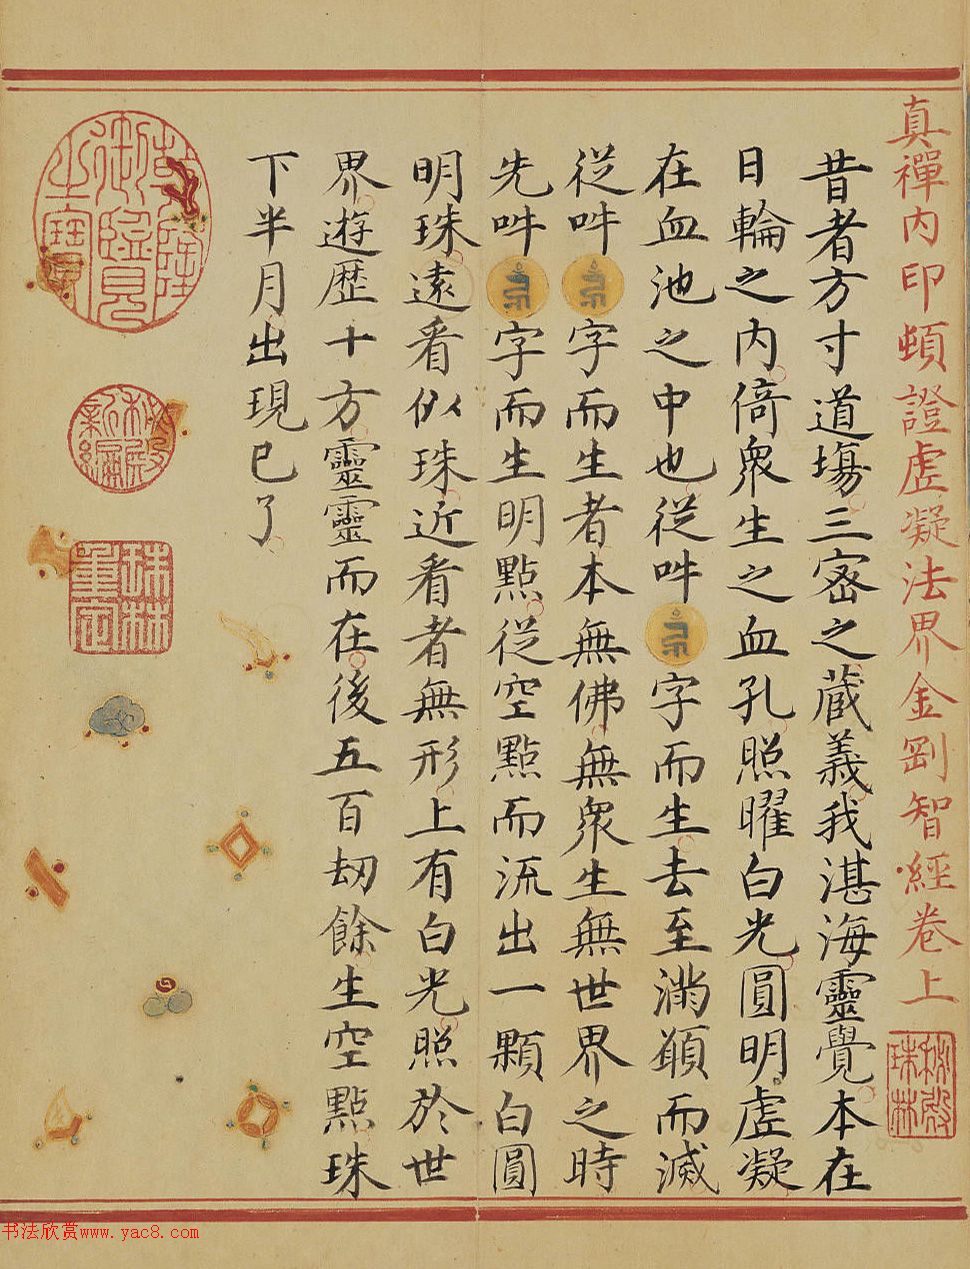 真禪内印頓證虛凝法界金剛智經卷上
昔者方寸道場三密之蔵義我湛海靈覺本在
日輪之内倚衆生之血孔照曜白光圓明虛凝
在血池之中也從吽字而生去至滿頟而滅
從吽字而生者本無佛無衆生無世界之時
先吽字而生明點從空點而流出一顆白圓
明珠遠看似珠近看者無形上有白光照於世
界遊歷十方靈靈而在後五百劫餘生空點珠
下半月出現已了
乾隆御覽之寶
秘殿新編
珠林重定
秘殿珠林
书法欣赏www.yac8.com